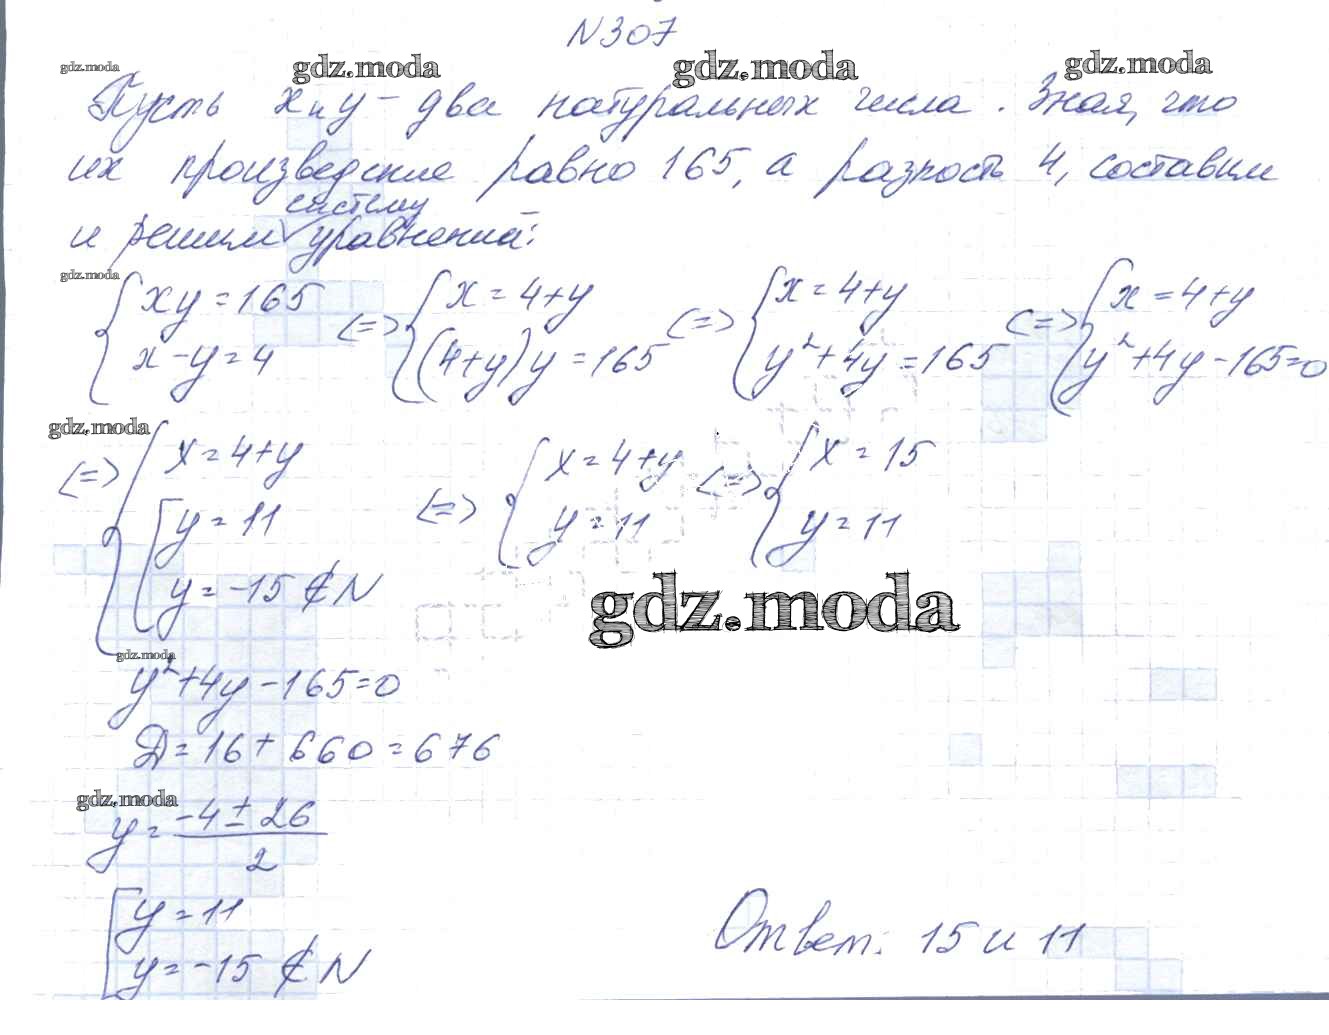 N307
gdz.moda gdz.moda gdz.moda gdz.moda
Пусть x и y – два натуральных числа. Зная, что
их произведение равно 165, а разность 4, составим
систему
и решим ∨ уравнений:
gdz.moda
{ xy = 165 <=> { x = 4+y <=> { x = 4+y <=> { x = 4+y
x - y = 4 (4+y)y = 165 y² + 4y = 165 y² + 4y - 165 = 0
gdz.moda
<=> { x = 4+y <=> { x = 4+y <=> { x = 15
[ y = 11 y = 11 y = 11
y = -15 ∉ N
gdz.moda
gdz.moda
y² + 4y - 165 = 0
D = 16 + 660 = 676
gdz.moda
y = (-4 ± 26) / 2
[ y = 11
y = -15 ∉ N
Ответ: 15 и 11